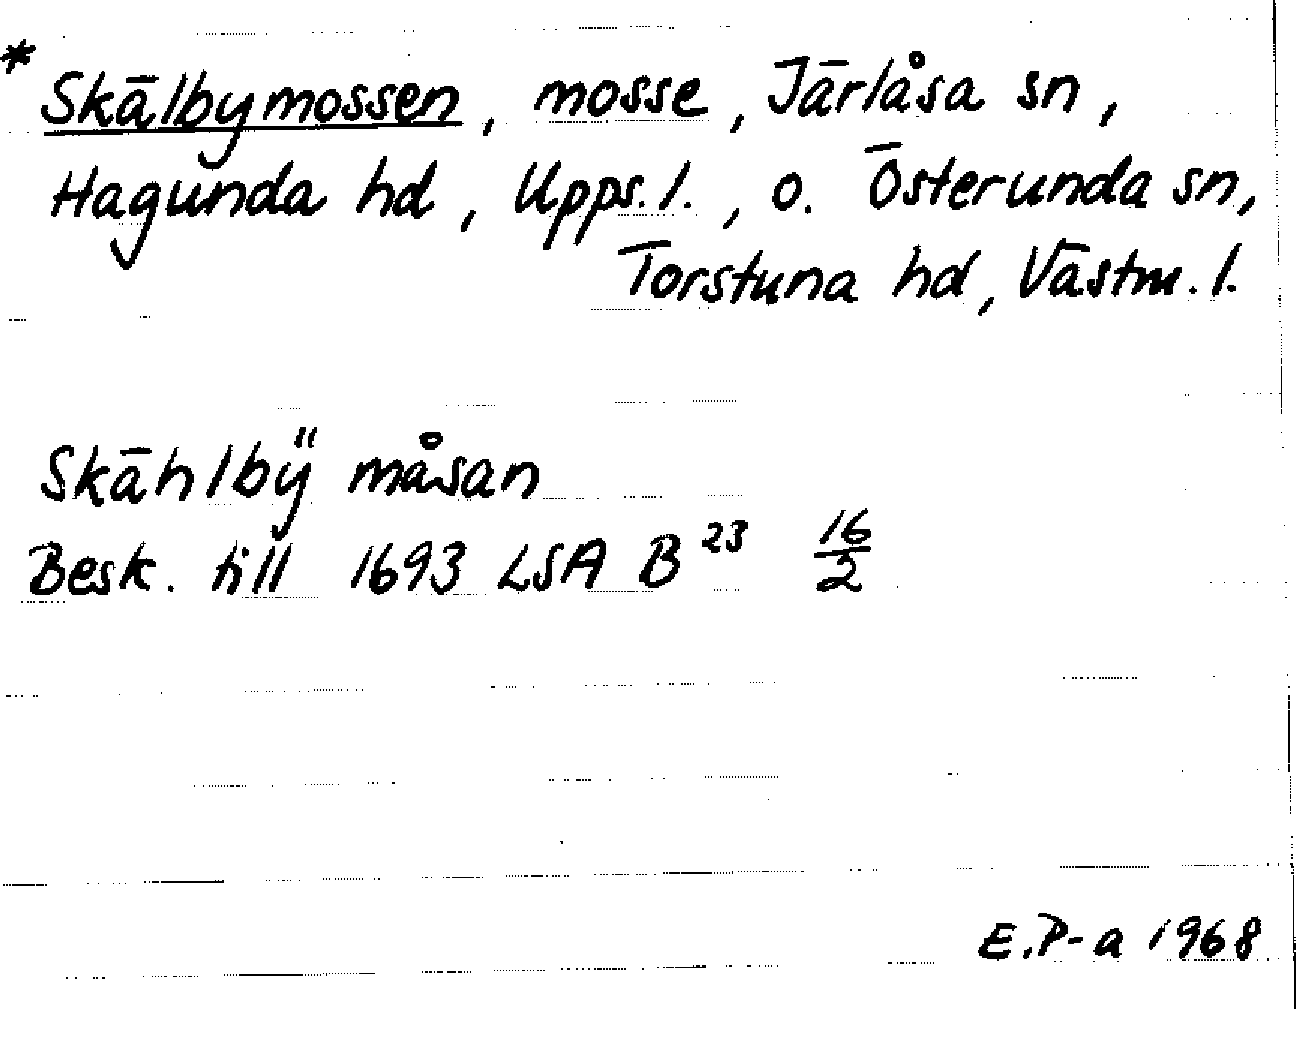 * Skälbymossen, mosse, Järlåsa sn,
Hagunda hd, Upps. l., o. Österunda sn,
Torstuna hd, Västm. l.
Skählbÿ måsan
Besk. till 1693 LSA B²³ 16/2
E.P-a 1968